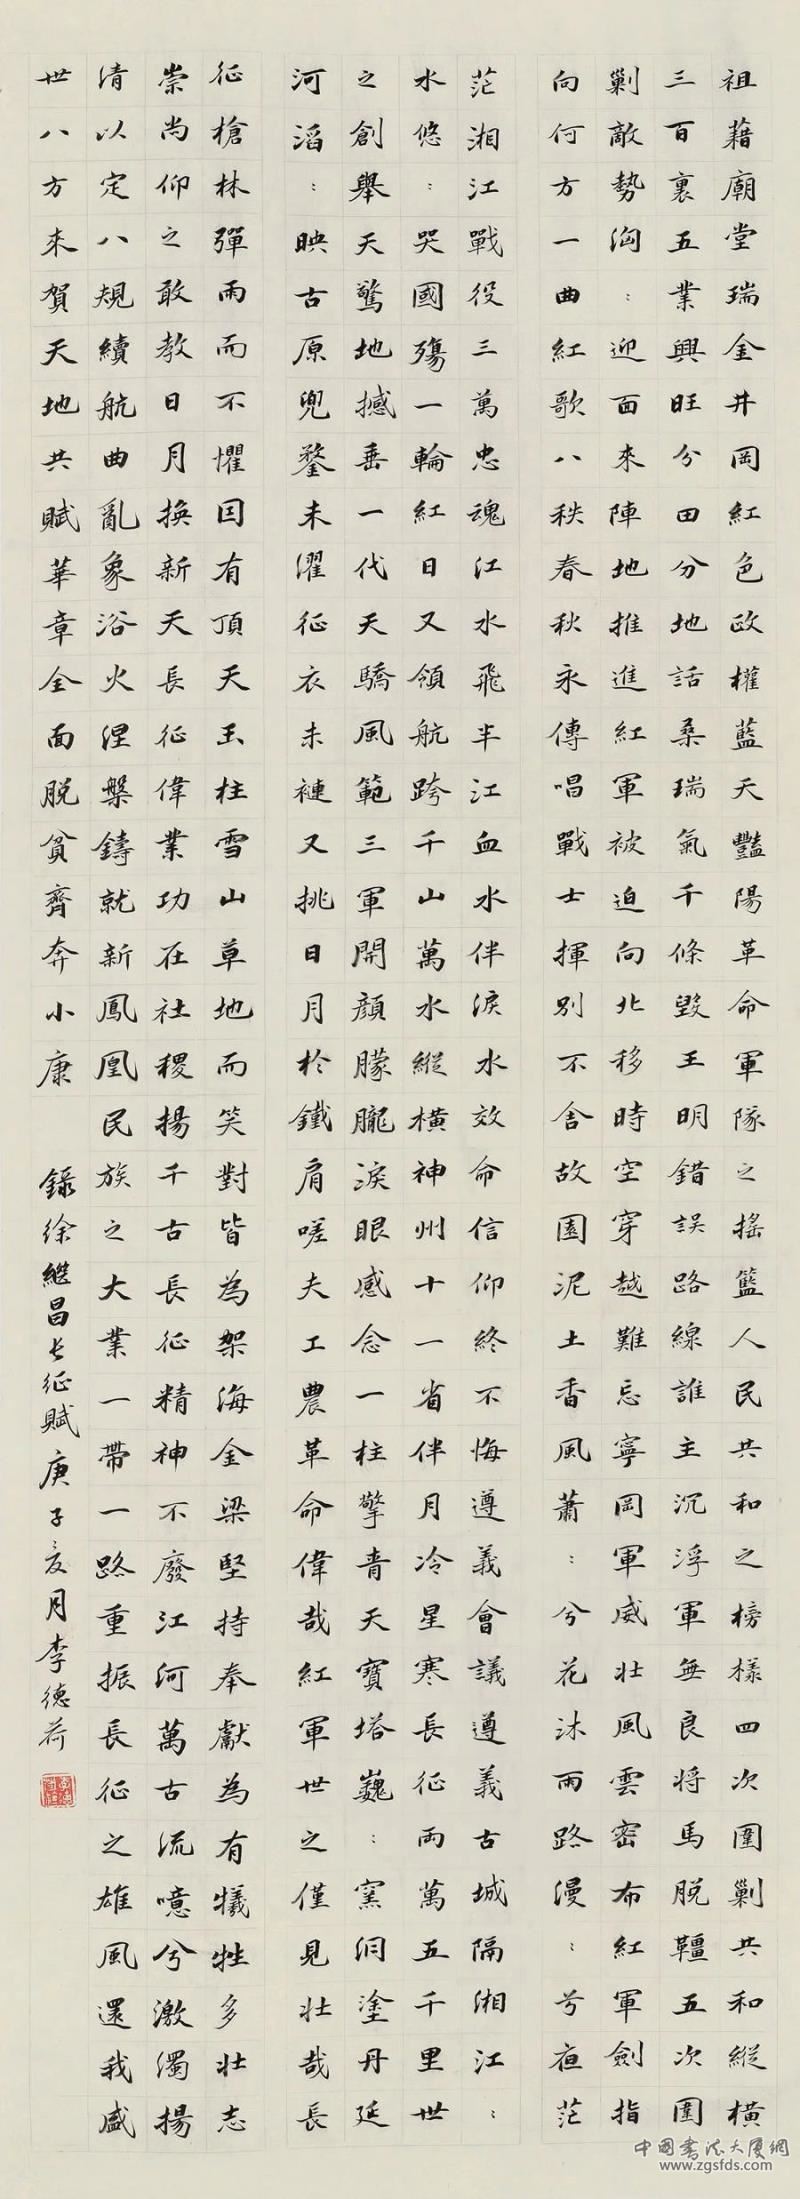 祖藉廟堂瑞金井岡紅色政權藍天豔陽革命軍隊之搖籃人民共和之榜樣四次圍剿共和縱橫
三百裏五業興旺分田分地話桑瑞氣千條毀王明錯誤路線誰主沉浮軍無良將馬脫韁五次圍
剿敵勢洶：迎面來陣地推進紅軍被迫向北移時空穿越難忘寧岡軍威壯風雲密布紅軍劍指
向何方一曲紅歌八秩春秋永傳唱戰士揮別不舍故園泥土香風蕭：兮花沐雨路漫：兮夜茫
茫湘江戰役三萬忠魂江水飛半江血水伴淚水效命信仰終不悔遵義會議遵義古城隔湘江：
水悠：哭國殤一輪紅日又領航跨千山萬水縱橫神州十一省伴月冷星寒長征兩萬五千里世
之創舉天驚地撼垂一代天驕風範三軍開顏朦朧淚眼感念一柱擎青天寶塔巍：窯洞塗丹延
河滔：映古原兜鍪未濯征衣未褳又挑日月於鐵肩嗟夫工農革命偉哉紅軍世之僅見壯哉長
征槍林彈雨而不懼因有頂天玉柱雪山草地而笑對皆為架海金梁堅持奉獻為有犧牲多壯志
崇尚仰之敢教日月換新天長征偉業功在社稷揚千古長征精神不廢江河萬古流噫兮激濁揚
清以定八規續航曲亂象浴火涅槃鑄就新鳳凰民族之大業一帶一路重振長征之雄風還我盛
世八方來賀天地共賦華章全面脫貧齊奔小康
錄徐繼昌長征賦庚子亥月李德荷
中國書法大廈網
www.zgsfds.com